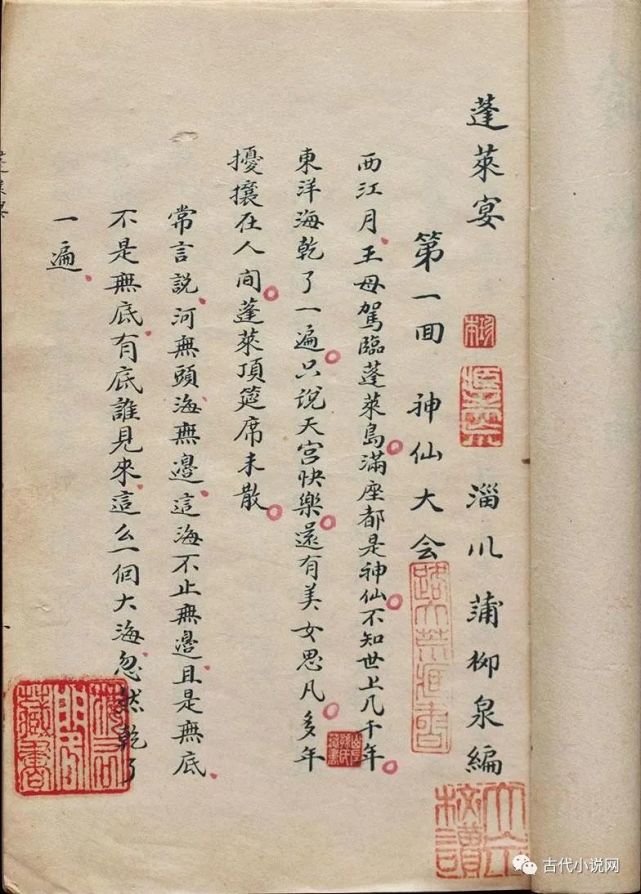 蓬萊宴 淄川蒲柳泉編
第一回 神仙大会
西江月、王母駕臨蓬萊島滿座都是神仙不知世上几千年
東洋海乾了一遍只説天宫快樂還有美女思凡多年
擾攘在人間蓬萊頂筵席未散
常言説、河無頭海無邉、這海不止無邉且是無底、
不是無底、有底誰見來、這么一個大海、忽然乾了
一遍、
古代小说网